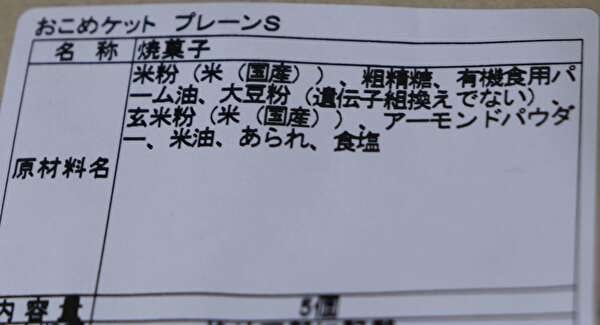 おこめケット プレーンS
名 称 焼菓子
原材料名
米粉（米（国産））、粗精糖、有機食用パ
ーム油、大豆粉（遺伝子組換えでない）、
玄米粉（米（国産））、アーモンドパウダ
ー、米油、あられ、食塩
内容量 5個